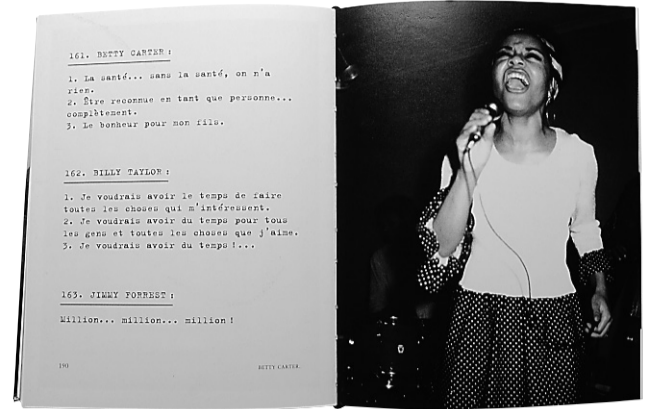 161. BETTY CARTER :
1. La santé... sans la santé, on n'a
rien.
2. Être reconnue en tant que personne...
complètement.
3. Le bonheur pour mon fils.
162. BILLY TAYLOR :
1. Je voudrais avoir le temps de faire
toutes les choses qui m'intéressent.
2. Je voudrais avoir du temps pour tous
les gens et toutes les choses que j'aime.
3. Je voudrais avoir du temps !...
163. JIMMY FORREST :
Million... million... million !
190
BETTY CARTER.